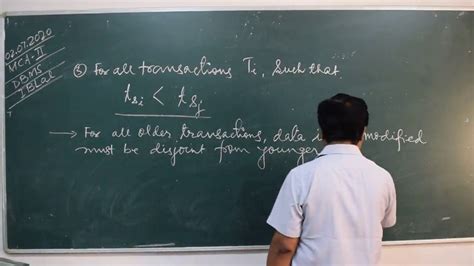 02.07.2020
MCA-II
DBMS
③ For all transactions Ti, such that
tsi < tsj
→ For all older transactions, data modified
must be disjoint from younger